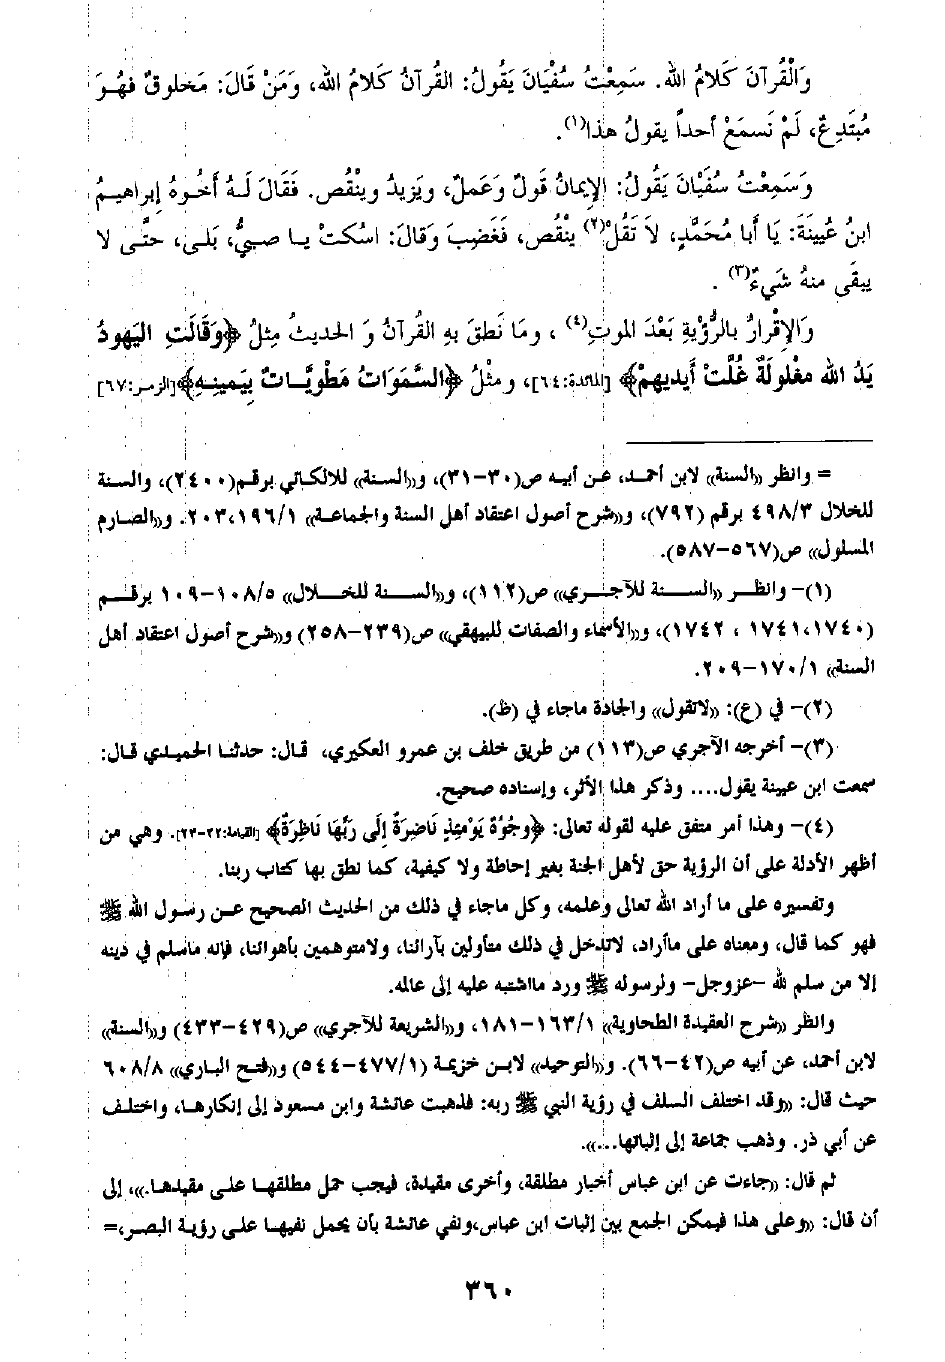 وَالْقُرآنَ كَلامُ الله. سَمِعْتُ سُفْيَانَ يَقُولُ: القُرآنُ كَلامُ الله، وَمَنْ قَالَ: مَخلوقٌ فهُوَ
مُبتَدِعٌ، لَمْ نَسمَعْ أحداً يقولُ هذا(١).
وَسَمِعْتُ سُفْيَانَ يَقُولُ: الإيمانُ قَولٌ وَعَملٌ، وَيَزيدُ وينْقُص. فَقَالَ لَهُ أَخُوهُ إبراهيمُ
ابنُ عُيينَةَ: يَا أَبا مُحَمَّدٍ، لاَ تَقُلْ(٢) ينْقُص، فَغَضِبَ وَقالَ: اسْكتْ يا صبيُّ، بَلى، حتَّى لا
يبقَى منهُ شَيءٌ(٣).
وَالإِقْرارُ بالرُّؤْيةِ بَعْدَ الموتِ(٤)، ومَا نَطقَ بهِ القُرآنُ وَ الحديثُ مِثلُ ﴿وَقَالَتِ اليَهودُ
يَدُ الله مغْلولَةٌ غُلَّتْ أَيديهمْ﴾ [المائدة:٦٤]، ومثْلُ ﴿السَّمَوَاتُ مَطْوِيَّاتٌ بِيَمينِهِ﴾[الزمر:٦٧]
= وانظر «السنة» لابن أحمد، عن أبيه ص(٣٠-٣١)، و«السنة» للالكائي برقم(٢٤٠٠)، والسنة
للخلال ٤٩٨/٣ برقم (٧٩٢)، و«شرح أصول اعتقاد أهل السنة والجماعة» ٢٠٣،١٩٦/١. و«الصارم
المسلول» ص(٥٦٧-٥٨٧).
(١)- وانظر «السنة للآجري» ص(١١٢)، و«السنة للخلال» ١٠٨/٥-١٠٩ برقم
(١٧٤٠،١٧٤١ ، ١٧٤٢)، و«الأسماء والصفات للبيهقي» ص(٢٣٩-٢٥٨) و«شرح أصول اعتقاد أهل
السنة» ١٧٠/١-٢٠٩.
(٢)- في (ع): «لاتقول» والجادة ماجاء في (ظ).
(٣)- أخرجه الآجري ص(١١٣) من طريق خلف بن عمرو العكبري، قال: حدثنا الحميدي قال:
سمعت ابن عيينة يقول.... وذكر هذا الأثر، وإسناده صحيح.
(٤)- وهذا أمر متفق عليه لقوله تعالى: ﴿وجُوهٌ يَوْمئِذٍ نَاضِرَةٌ إلَى رَبِّهَا نَاظِرَةٌ﴾ [القيامة:٢٢-٢٣]. وهي من
أظهر الأدلة على أن الرؤية حق لأهل الجنة بغير إحاطة ولا كيفية، كما نطق بها كتاب ربنا.
وتفسيره على ما أراد الله تعالى وعلمه، وكل ماجاء في ذلك من الحديث الصحيح عن رسول الله ﷺ
فهو كما قال، ومعناه على ماأراد، لاندخل في ذلك متأولين بآرائنا، ولامتوهمين بأهوائنا، فإنه ماسلم في دينه
إلا من سلم لله -عزوجل- ولرسوله ﷺ ورد مااشتبه عليه إلى عالمه.
وانظر «شرح العقيدة الطحاوية» ١٦٣/١-١٨١، و«الشريعة للآجري» ص(٤٢٩-٤٣٣) و«السنة»
لابن أحمد، عن أبيه ص(٤٢-٦٦). و«التوحيد» لابن خزيمة (٤٧٧/١-٥٤٤) و«فتح الباري» ٦٠٨/٨
حيث قال: «وقد اختلف السلف في رؤية النبي ﷺ ربه: فذهبت عائشة وابن مسعود إلى إنكارها، واختلف
عن أبي ذر. وذهب جماعة إلى إثباتها...».
ثم قال: «جاءت عن ابن عباس أخبار مطلقة، وأخرى مقيدة، فيجب حمل مطلقها على مقيدها.»، إلى
أن قال: «وعلى هذا فيمكن الجمع بين إثبات ابن عباس،ونفي عائشة بأن يحمل نفيها على رؤية البصر،=
٣٦٠